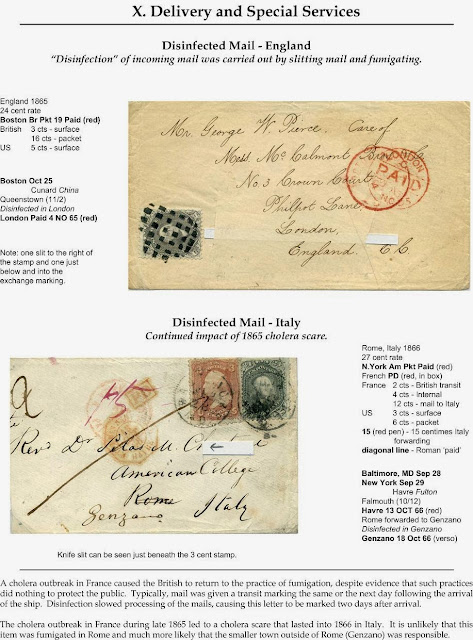 X. Delivery and Special Services
Disinfected Mail - England
“Disinfection” of incoming mail was carried out by slitting mail and fumigating.
England 1865
24 cent rate
Boston Br Pkt 19 Paid (red)
British 3 cts - surface
16 cts - packet
US 5 cts - surface
Boston Oct 25
Cunard China
Queenstown (11/2)
Disinfected in London
London Paid 4 NO 65 (red)
Note: one slit to the right of
the stamp and one just
below and into the
exchange marking.
Mr. George W. Pierce. Care of
Mess Mc Calmont Bros & Co
No 3 Crown Court
Philpot Lane,
London,
England. E.C.
LONDON
PAID
Disinfected Mail - Italy
Continued impact of 1865 cholera scare.
Revd Dr Silas M.
American College
Rome
Genzano Italy
Rome, Italy 1866
27 cent rate
N.York Am Pkt Paid (red)
French PD (red, in box)
France 2 cts - British transit
4 cts - Internal
12 cts - mail to Italy
US 3 cts - surface
6 cts - packet
15 (red pen) - 15 centimes Italy
forwarding
diagonal line - Roman 'paid'
Baltimore, MD Sep 28
New York Sep 29
Havre Fulton
Falmouth (10/12)
Havre 13 OCT 66 (red)
Rome forwarded to Genzano
Disinfected in Genzano
Genzano 18 Oct 66 (verso)
Knife slit can be seen just beneath the 3 cent stamp.
A cholera outbreak in France caused the British to return to the practice of fumigation, despite evidence that such practices
did nothing to protect the public. Typically, mail was given a transit marking the same or the next day following the arrival
of the ship. Disinfection slowed processing of the mails, causing this letter to be marked two days after arrival.
The cholera outbreak in France during late 1865 led to a cholera scare that lasted into 1866 in Italy. It is unlikely that this
item was fumigated in Rome and much more likely that the smaller town outside of Rome (Genzano) was responsible.